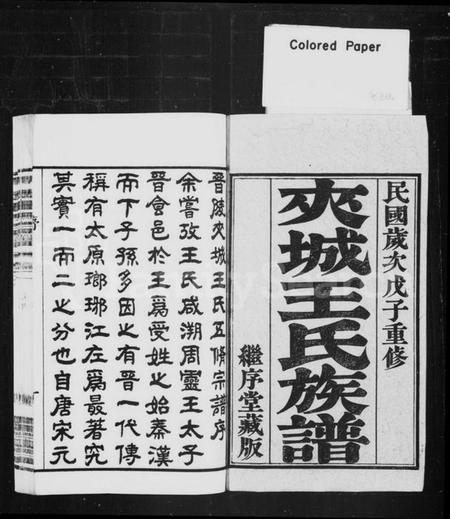 Colored Paper
民國歲次戊子重修
夾城王氏族譜
繼序堂藏版
晉陵夾城王氏五修宗譜序
余嘗攷王氏咸溯周靈王太子
晉食邑於王爲受姓之始秦漢
而下子孫多因之有晉一代傳
稱有太原瑯琊江左爲最著究
其實一而二之分也自唐宋元